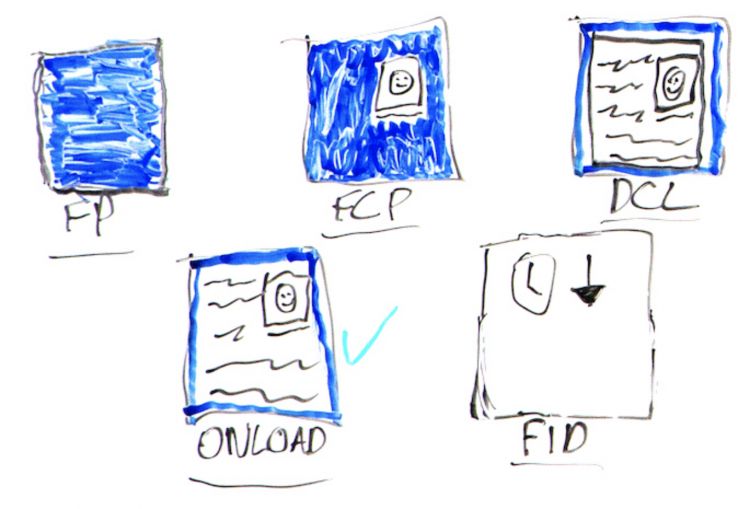 FP
FCP
DCL
ONLOAD
FID